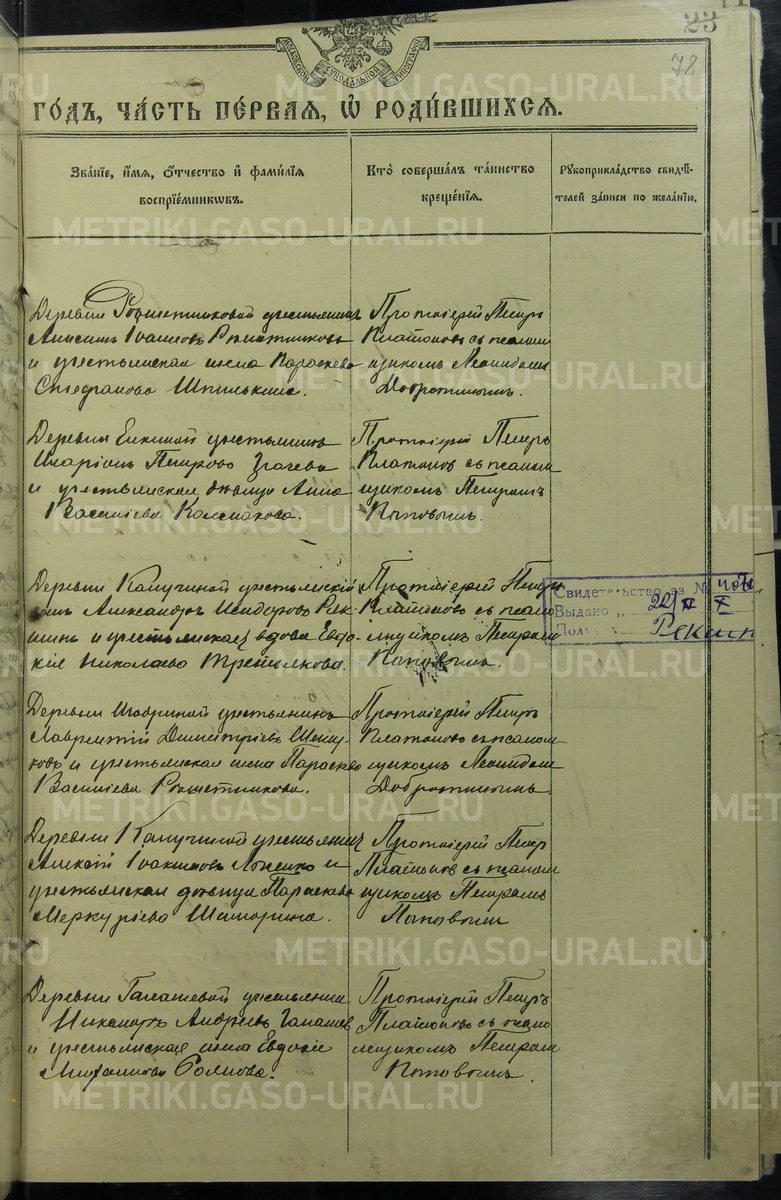 23
78
МОСКОВСКОЙ СѴНОДАЛЬНОЙ ТИПОГРАФІИ
ГО́ДЪ, ЧА́СТЬ ПЕ́РВАЯ, Ѡ҆ РОДИ́ВШИХСЯ.
Зва́нїе, и҆́мя, ѻ҆́тчество и҆ фами́лїя
воспрїе́мниковъ.
Кто̀ соверша́лъ та́инство
креще́нїя.
Рꙋкоприкла́дство свидѣ́-
телей за́писи по жела́нїю.
Деревни Рѣшетниковой крестьянинъ
Анисимъ Іоанновъ Рѣшетниковъ
и крестьянская жена Параскева
Стефанова Шпинькина.
Протоіерей Петръ
Платоновъ съ псалом
щикомъ Леонидомъ
Добротинымъ.
Деревни крестьянинъ
Иларіонъ Петровъ
и крестьянская дѣвица Анна
Васильева Колмакова.
Протоіерей Петръ
Платонов съ псалом
щикомъ Петромъ
Поповымъ.
Деревни Калугиной крестьянскій
сынъ Александръ Исидоровъ Рек
шинъ и крестьянская вдова Евдо-
кія Николаева Третьякова.
Протоіерей Петръ
Платоновъ съ псало
мщикомъ Петромъ
Поповымъ.
Свидетельство за №
Выдано " 22/II
Пол
Деревни крестьянинъ
Лаврентій Димитріевъ
и крестьянская жена Параскева
Васильева Рѣшетникова.
Протоіерей Петръ
Платоновъ съ псалом
щикомъ Леонидом
Добротинымъ.
Деревни Калугиной крестьянинъ
Алексій Іоакимовъ и
крестьянская дѣвица Параскева
Меркуріева Шаторина.
Протоіерей Петр
Платонов съ псалом
щикомъ Петромъ
Поповымъ
Деревни Галашевой крестьянинъ
Никаноръ Андреевъ Галашев
и крестьянская жена Евдокія
Протоіерей Петръ
Платоновъ съ псало
мщикомъ Петром
Поповымъ.
METRIKI.GASO-URAL.RU